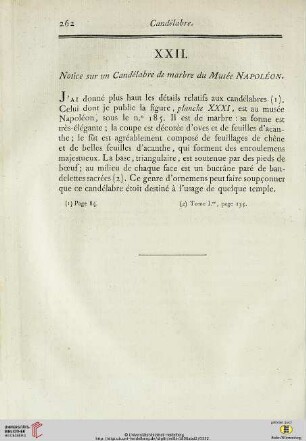 262
Candélabre.
XXII.
Notice sur un Candélabre de marbre du Musée NAPOLÉON.
J'AI donné plus haut les détails relatifs aux candélabres (1).
Celui dont je publie la figure, planche XXXI, est au musée
Napoléon, sous le n.º 185. Il est de marbre : sa forme est
très-élégante ; la coupe est décorée d'oves et de feuilles d'acan-
the ; le fût est agréablement composé de feuillages de chêne
et de belles feuilles d'acanthe, qui forment des enroulemens
majestueux. La base, triangulaire, est soutenue par des pieds de
bœuf; au milieu de chaque face est un bucrâne paré de ban-
delettes sacrées (2). Ce genre d'ornemens peut faire soupçonner
que ce candélabre étoit destiné à l'usage de quelque temple.
(1) Page 84.
(2) Tome I.er, page 135.
UNIVERSITÄTS-
BIBLIOTHEK
HEIDELBERG
© Universitätsbibliothek Heidelberg
gefördert durch
Baden-Württemberg